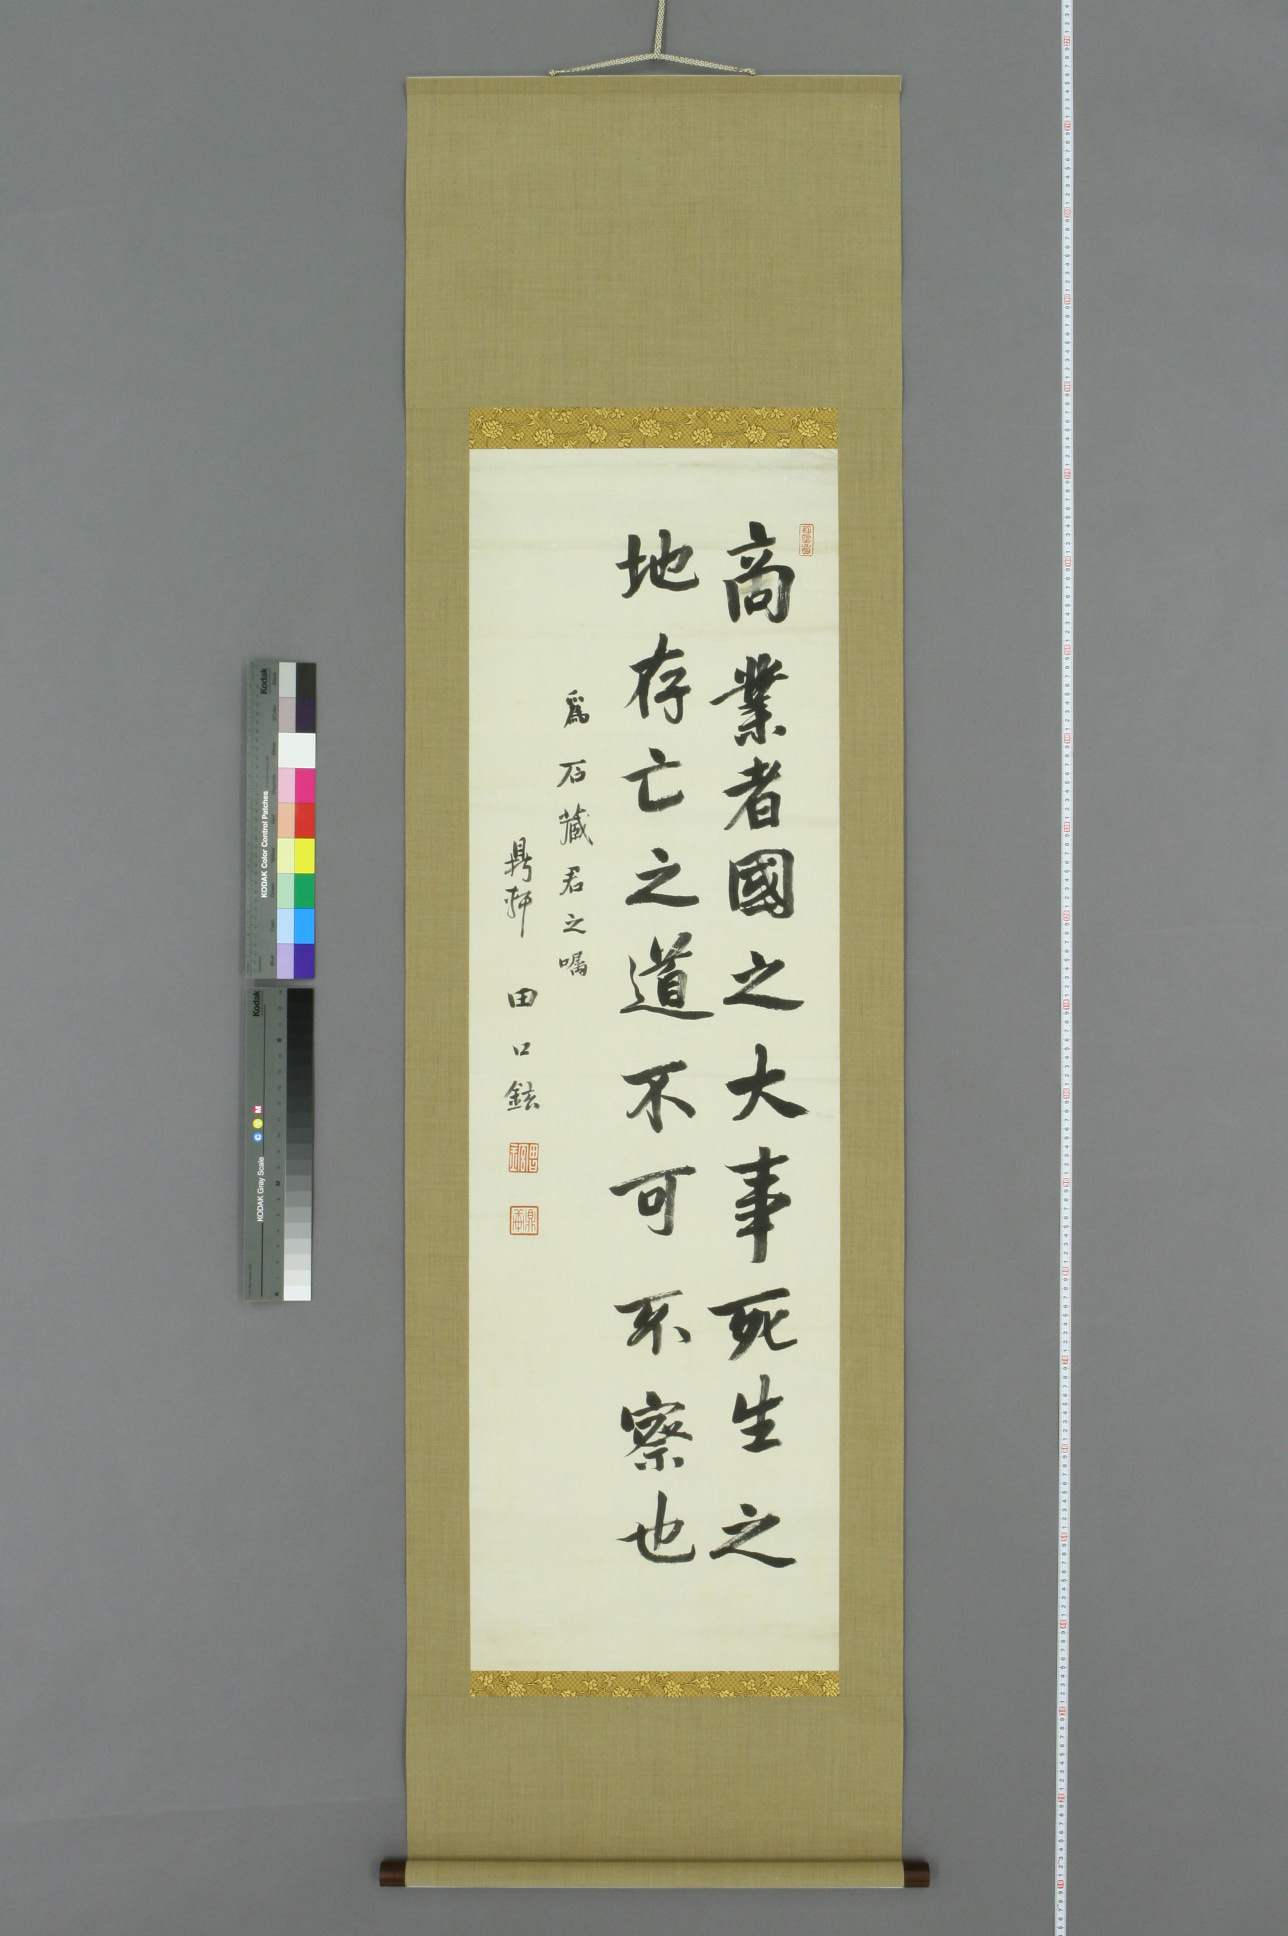 商業者國之大事死生之
地存亡之道不可不察也
爲石藏君之嘱
鼎軒 田口鉉
KODAK Color Control Patches
Kodak
KODAK Gray Scale
Kodak
C Y M